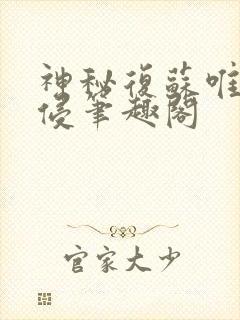 神秘復蘇唯
侵筆趣閣
官家大少